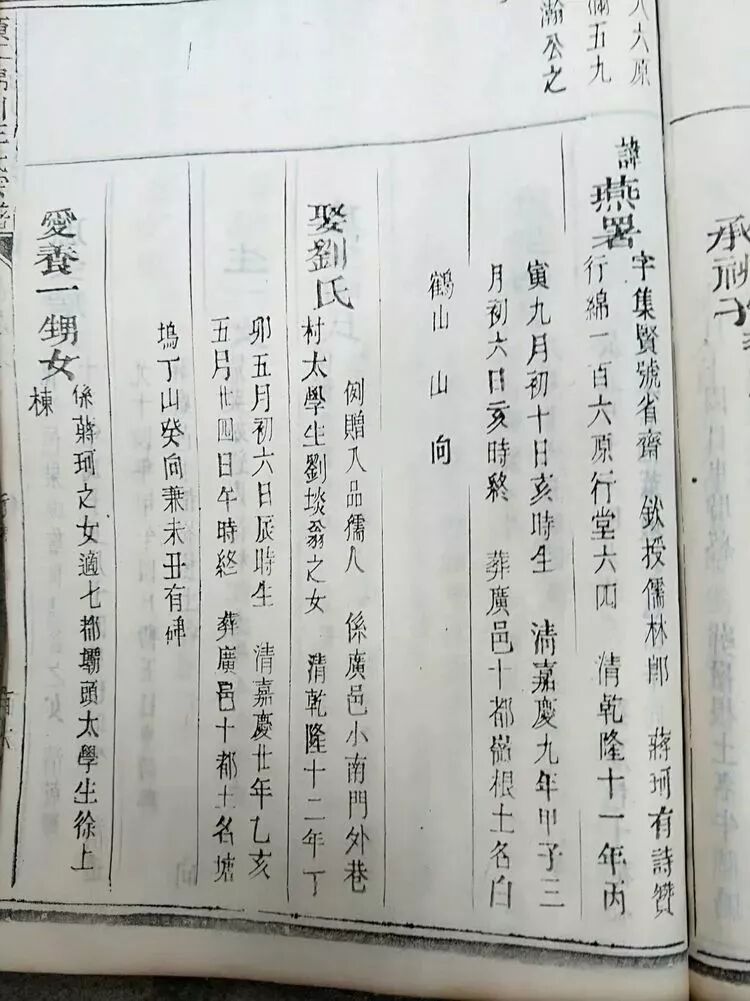 六原
五九
瀚公之
諱
燕署
字集賢號省齋 欽授儒林郎 蔣珂有詩贊
行綿一百六原行堂六四 清乾隆十一年丙
寅九月初十日亥時生 清嘉慶九年甲子三
月初六日亥時終 葬廣邑十都崙根土名白
鶴山山向
娶劉氏
例贈八品孺人 係廣邑小南門外巷
村太學生劉埮翁之女 清乾隆十二年丁
卯五月初六日辰時生 清嘉慶廿年乙亥
五月廿四日午時終 葬廣邑十都土名塘
塢丁山癸向兼未丑有碑
愛養一甥女
係蔣珂之女適七都壩頭太學生徐上
棟